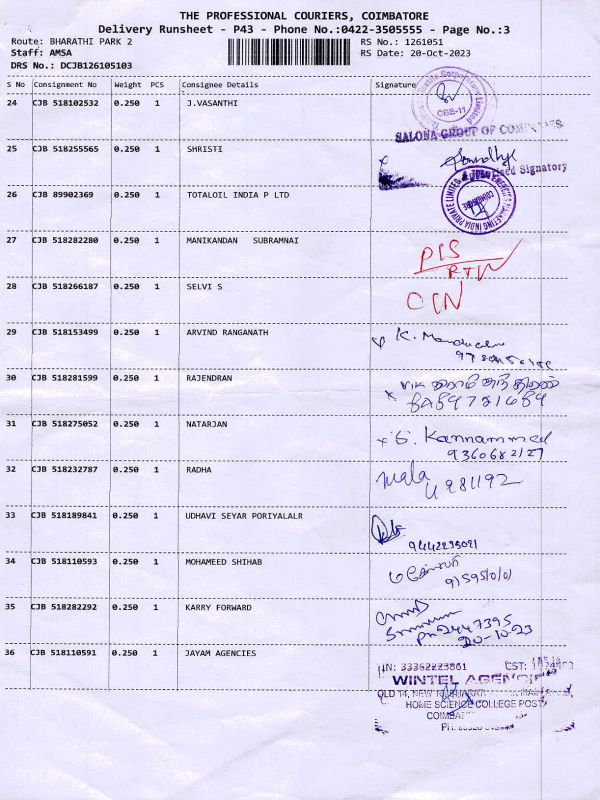 THE PROFESSIONAL COURIERS, COIMBATORE
Delivery Runsheet - P43 - Phone No.:0422-3505555 - Page No.:3
Route: BHARATHI PARK 2 RS No.: 1261051
Staff: AMSA RS Date: 20-Oct-2023
DRS No.: DCJB126105103
S No Consignment No Weight PCS Consignee Details Signature
24 CJB 518102532 0.250 1 J.VASANTHI
CBE-11
SALONA GROUP OF COMPANIES
25 CJB 518255565 0.250 1 SHRISTI
Signatory
26 CJB 89902369 0.250 1 TOTALOIL INDIA P LTD
COIMBATORE
27 CJB 518282280 0.250 1 MANIKANDAN SUBRAMNAI
28 CJB 518266187 0.250 1 SELVI S
29 CJB 518153499 0.250 1 ARVIND RANGANATH
30 CJB 518281599 0.250 1 RAJENDRAN
31 CJB 518275052 0.250 1 NATARJAN
9360682127
32 CJB 518232787 0.250 1 RADHA
Mala
33 CJB 518189841 0.250 1 UDHAVI SEYAR PORIYALALR
34 CJB 518110593 0.250 1 MOHAMEED SHIHAB
35 CJB 518282292 0.250 1 KARRY FORWARD
20-10-23
36 CJB 518110591 0.250 1 JAYAM AGENCIES
CST:
WINTEL
HOME SCIENCE COLLEGE POST